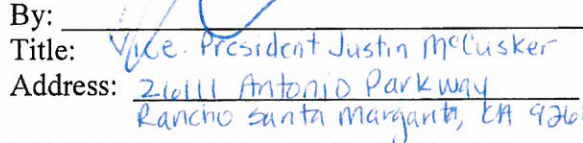 By:
Title: Vice President Justin McCusker
Address: 26111 Antonio Parkway
Rancho Santa Margarita, CA 926